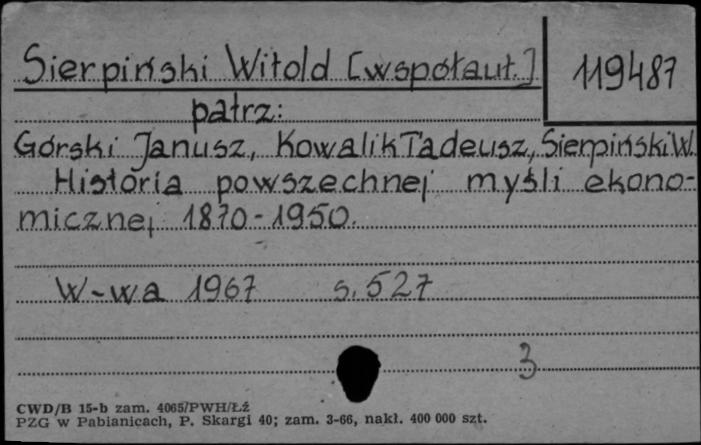 Sierpiński Witold [współaut.]
119487
patrz:
Górski Janusz, Kowalik Tadeusz, Sierpiński W.
Historia powszechnej myśli ekono-
micznej 1870-1950.
W-wa 1967 s. 527
3
CWD/B 15-b zam. 4065/PWH/Łź
PZG w Pabianicach, P. Skargi 40; zam. 3-66, nakł. 400 000 szt.